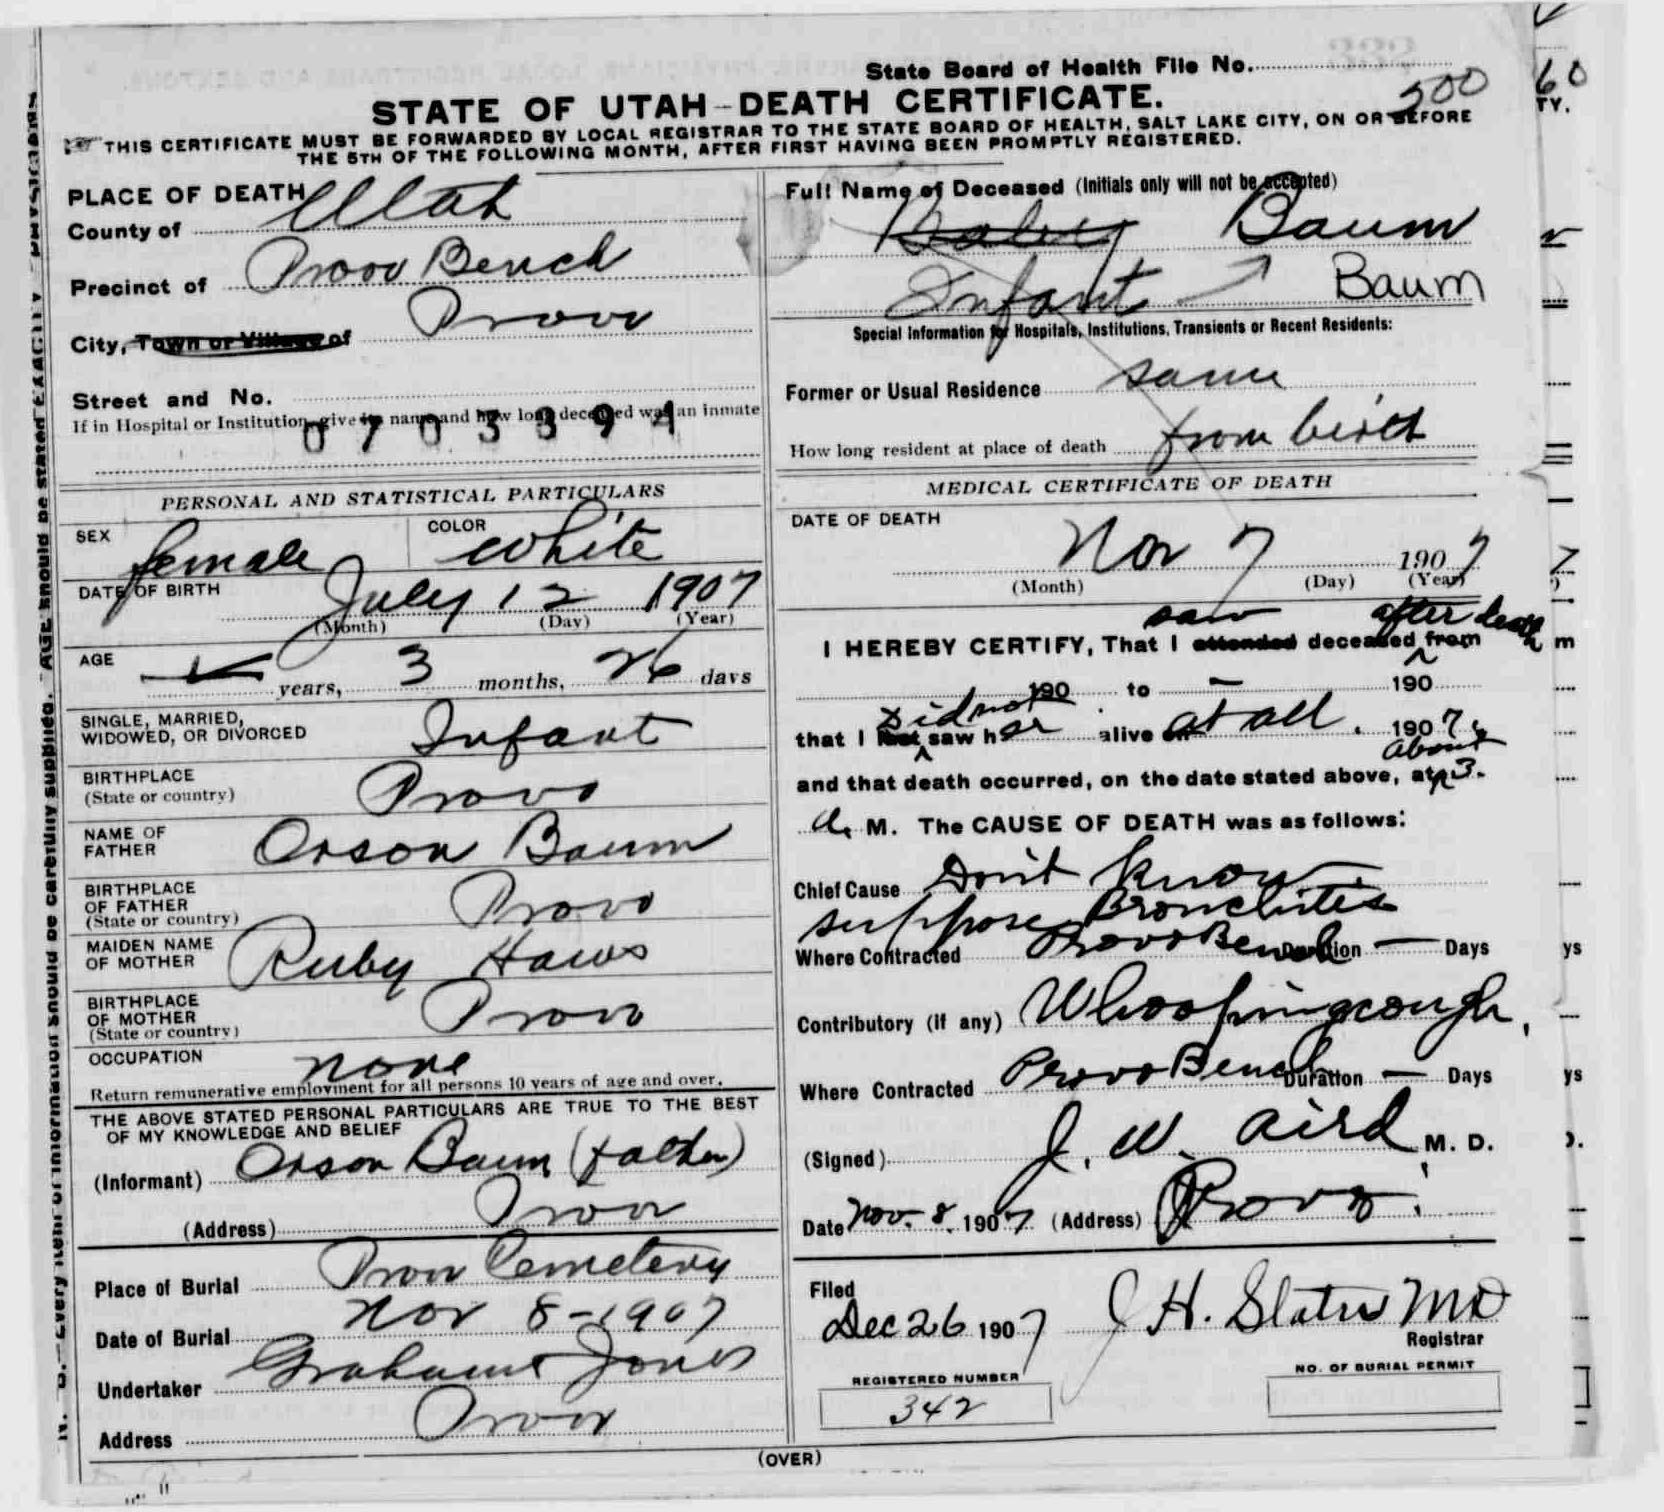 State Board of Health File No.
500
STATE OF UTAH–DEATH CERTIFICATE.
THIS CERTIFICATE MUST BE FORWARDED BY LOCAL REGISTRAR TO THE STATE BOARD OF HEALTH, SALT LAKE CITY, ON OR BEFORE
THE 5TH OF THE FOLLOWING MONTH, AFTER FIRST HAVING BEEN PROMPTLY REGISTERED.
PLACE OF DEATH
County of Utah
Precinct of Provo Bench
City, Town or Village of Provo
Street and No.
If in Hospital or Institution, give its name and how long deceased was an inmate
0703394
PERSONAL AND STATISTICAL PARTICULARS
SEX female COLOR white
DATE OF BIRTH July 12 1907
(Month) (Day) (Year)
AGE years, 3 months, 26 days
SINGLE, MARRIED,
WIDOWED, OR DIVORCED Infant
BIRTHPLACE
(State or country) Provo
NAME OF
FATHER Orson Baum
BIRTHPLACE
OF FATHER
(State or country) Provo
MAIDEN NAME
OF MOTHER Ruby Haws
BIRTHPLACE
OF MOTHER
(State or country) Provo
OCCUPATION none
Return remunerative employment for all persons 10 years of age and over.
THE ABOVE STATED PERSONAL PARTICULARS ARE TRUE TO THE BEST
OF MY KNOWLEDGE AND BELIEF
(Informant) Orson Baum (father)
(Address) Provo
Place of Burial Provo Cemetery
Date of Burial Nov 8-1907
Undertaker Graham Jones
Address Provo
Full Name of Deceased (Initials only will not be accepted)
Baby Baum
Infant Baum
Special Information for Hospitals, Institutions, Transients or Recent Residents:
Former or Usual Residence same
How long resident at place of death from birth
MEDICAL CERTIFICATE OF DEATH
DATE OF DEATH
Nov 7 1907
(Month) (Day) (Year)
saw after death
I HEREBY CERTIFY, That I attended deceased from
190 to – 190
did not
that I last saw her alive on at all. 1907.
about
and that death occurred, on the date stated above, at 3.
a. M. The CAUSE OF DEATH was as follows:
Chief Cause Don't know
suppose Bronchitis
Where Contracted Provo Bench Duration — Days
Contributory (if any) Whooping cough,
Where Contracted Provo Bench Duration — Days
(Signed) J. W. Aird M. D.
Date Nov. 8. 1907 (Address) Provo.
Filed
Dec 26 1907 J H. Slater MD
Registrar
REGISTERED NUMBER
342
NO. OF BURIAL PERMIT
(OVER)
60
TY.
m
ys
ys